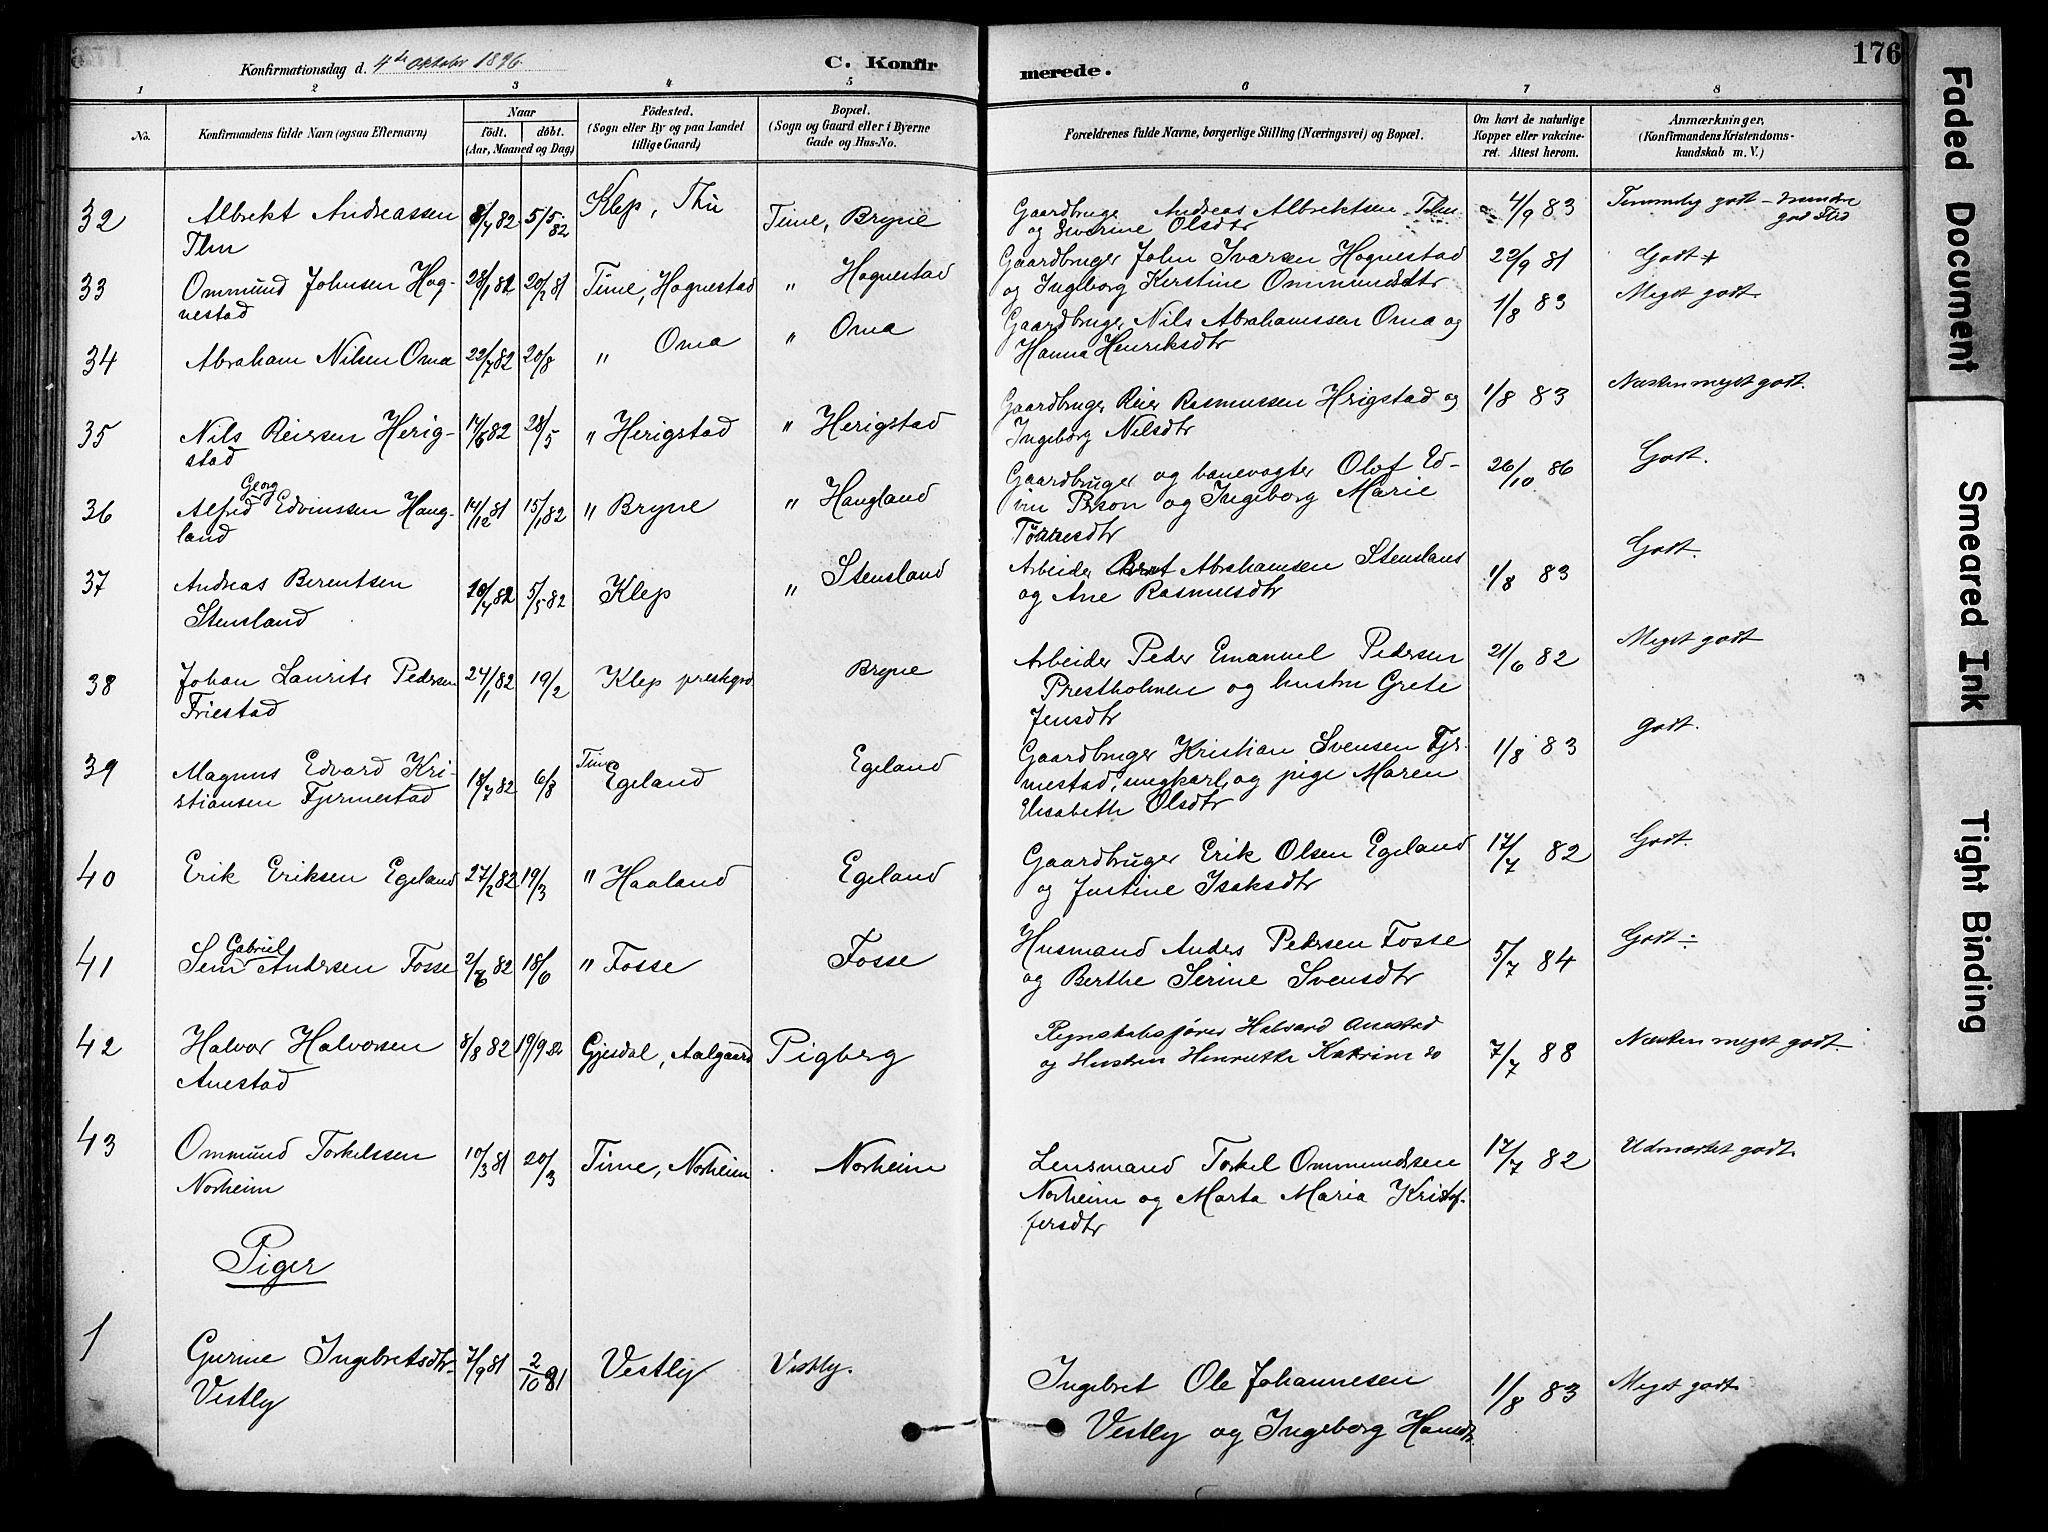 Konfirmationsdag d. 4de Oktober 1896
C. Konfirmerede.
176
1 2 3 4 5 6 7 8
No.
Konfirmandens fulde Navn (ogsaa Efternavn)
Naar
født. døbt.
(Aar, Maaned og Dag)
Fødested.
(Sogn eller By og paa Landet
tillige Gaard)
Bopæl.
(Sogn og Gaard eller i Byerne
Gade og Hus-No.
Forældrenes fulde Navne, borgerlige Stilling (Næringsvei) og Bopæl.
Om havt de naturlige
Kopper eller vakcine-
ret. Attest herom.
Anmærkninger,
(Konfirmandens Kristendoms-
kundskab m. V.)
32 Albrekt Andreassen 8/4 82 5/5 82 Klep, Thu Time, Bryne Gaardbruger Andreas Albrektsen Thu 4/9 83 Temmelig godt - mindre
Thu og Severine Olsdtr god Flid
33 Ommund Johnsen Hog- 28/1 81 20/2 81 Time, Hognestad " Hognestad Gaardbruger John Ivarsen Hognestad 22/9 81 Godt +
nestad og Ingeborg Kerstine Ommundsdtr
34 Abraham Nilsen Oma 22/7 82 20/8 " Oma " Oma Gaardbruger Nils Abrahamssen Oma og 1/8 83 Meget godt.
Hanna Henriksdtr
35 Nils Reiersen Herig- 28/5 " Herigstad " Herigstad Gaardbruger Reier Rasmussen Hrigstad og 1/8 83 Næsten meget godt.
stad Ingeborg Nilsdtr
36 Alfred Georg Edvinssen Haug- 14/12 81 15/1 82 " Bryne " Haugland Gaardbruger og banevogter Olof Ed- 26/10 86 Godt.
land vin Person og Ingeborg Marie
Tønnesdtr
37 Andreas Berentsen 82 5/5 82 Klep " Stensland Arbeider Brnt Abrahamsen Stensland 1/8 83 Godt.
Stensland og Ane Rasmusdtr
38 Johan Laurits Pedersen 24/1 82 19/2 Klep prestegrd Bryne Arbeider Peder Emanuel Pedersen 21/6 82 Meget godt
Friestad Prestholmen og hustru Grete
Jensdtr
39 Magnus Edvard Kri- 18/7 82 6/8 Time Egeland Egeland Gaardbruger Kristian Svensen Fjr- 1/8 83 godt.
stiansen Fjermestad mestad, ungkarl, og pige Maren
Elisabeth Olsdtr
40 Erik Eriksen Egeland 27/2 82 19/3 " Haaland Egeland Gaardbruger Erik Olsen Egeland 17/7 82 Godt.
og Justine Isaksdtr
41 Sem Gabriel Andersen Fosse 2/6 82 18/6 " Fosse Fosse Husmand Anders Petersen Fosse 5/7 84 Godt ÷
og Berthe Serine Svensdtr
42 Halvor Halvorsen 8/8 82 19/9 82 Gjesdal, Aalgaard Pigberg Regnskabsfører Halvard Anestad 7/7 88 Næsten meget godt.
Anestad og Hustru Henriette Katrine do
43 Ommund Torkelssen 10/3 81 20/3 Time, Norheim Norheim Lensmand Torkel Ommundsen 17/7 82 Udmærket godt.
Norheim Norheim og Marta Maria Kristof-
fersdtr
Piger
1 Gurine Ingebretsdtr 7/9 81 2/10 81 Vestly Vestly. Ingebret Ole Johannesen 1/8 83 Meget godt.
Vestly Vestly og Ingeborg Hansdtr
Faded Document
Smeared Ink
Tight Binding